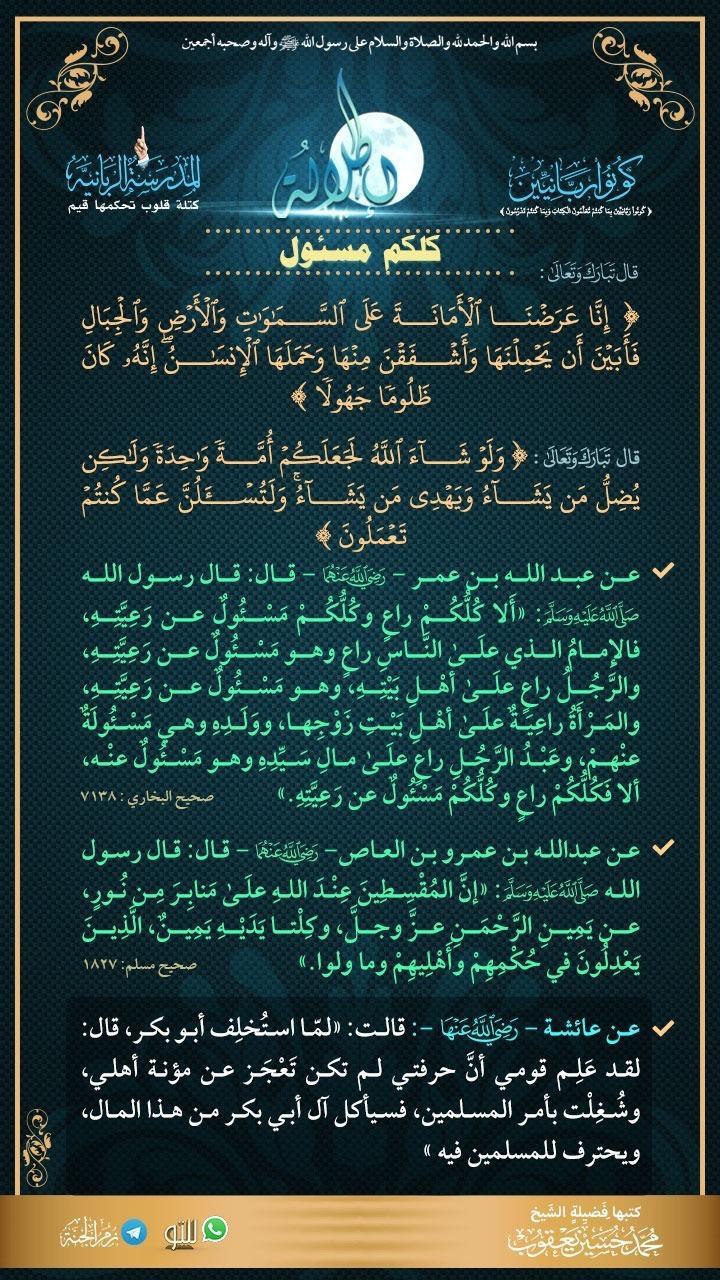 بسم الله والحمد لله والصلاة والسلام على رسول الله ﷺ وآله وصحبه أجمعين
كونوا ربانيين
﴿ كُونُوا رَبَّانِيِّينَ بِمَا كُنتُمْ تُعَلِّمُونَ الْكِتَابَ وَبِمَا كُنتُمْ تَدْرُسُونَ ﴾
إطلالة
المدرسة الربانية
كتلة قلوب تحكمها قيم
كلكم مسئول
قال تَبَارَكَ وَتَعَالَىٰ :
﴿ إِنَّا عَرَضْنَا ٱلْأَمَانَةَ عَلَى ٱلسَّمَٰوَٰتِ وَٱلْأَرْضِ وَٱلْجِبَالِ
فَأَبَيْنَ أَن يَحْمِلْنَهَا وَأَشْفَقْنَ مِنْهَا وَحَمَلَهَا ٱلْإِنسَٰنُ ۖ إِنَّهُۥ كَانَ
ظَلُومًا جَهُولًا ﴾
قال تَبَارَكَ وَتَعَالَىٰ : ﴿ وَلَوْ شَآءَ ٱللَّهُ لَجَعَلَكُمْ أُمَّةً وَٰحِدَةً وَلَٰكِن
يُضِلُّ مَن يَشَآءُ وَيَهْدِى مَن يَشَآءُ ۚ وَلَتُسْـَٔلُنَّ عَمَّا كُنتُمْ
تَعْمَلُونَ ﴾
عن عبد الله بن عمر – رَضِيَ اللَّهُ عَنْهُمَا – قال: قال رسول الله
صَلَّى اللَّهُ عَلَيْهِ وَسَلَّمَ: «أَلا كُلُّكُمْ راعٍ وكُلُّكُمْ مَسْئُولٌ عن رَعِيَّتِهِ،
فالإمامُ الذي علَىٰ النَّاسِ راعٍ وهو مَسْئُولٌ عن رَعِيَّتِهِ،
والرَّجُلُ راعٍ علَىٰ أهْلِ بَيْتِهِ، وهو مَسْئُولٌ عن رَعِيَّتِهِ،
والمَرْأَةُ راعِيَةٌ علَىٰ أهْلِ بَيْتِ زَوْجِها، ووَلَدِهِ وهي مَسْئُولَةٌ
عنْهمْ، وعَبْدُ الرَّجُلِ راعٍ علَىٰ مالِ سَيِّدِهِ وهو مَسْئُولٌ عنْه،
ألا فَكُلُّكُمْ راعٍ وكُلُّكُمْ مَسْئُولٌ عن رَعِيَّتِهِ.» صحيح البخاري : ٧١٣٨
عن عبدالله بن عمرو بن العاص– رَضِيَ اللَّهُ عَنْهُمَا – قال: قال رسول
الله صَلَّى اللَّهُ عَلَيْهِ وَسَلَّمَ: «إنَّ المُقْسِطِينَ عِنْدَ اللهِ علَىٰ مَنابِرَ مِن نُورٍ،
عن يَمِينِ الرَّحْمَنِ عزَّ وجلَّ، وكِلْتا يَدَيْهِ يَمِينٌ، الَّذِينَ
يَعْدِلُونَ في حُكْمِهِمْ وأَهْلِيهِمْ وما ولوا.» صحيح مسلم: ١٨٢٧
عن عائشة – رَضِيَ اللَّهُ عَنْهَا –: قالت: «لمّا استُخلِف أبو بكر، قال:
لقد عَلِم قومي أنَّ حرفتي لم تكن تَعْجَز عن مؤنة أهلي،
وشُغِلْت بأمر المسلمين، فسيأكل آل أبي بكر من هذا المال،
ويحترف للمسلمين فيه »
كتبها فَضِيلة الشَيخ
محمد حسين يعقوب
للتو
زمر الجنة